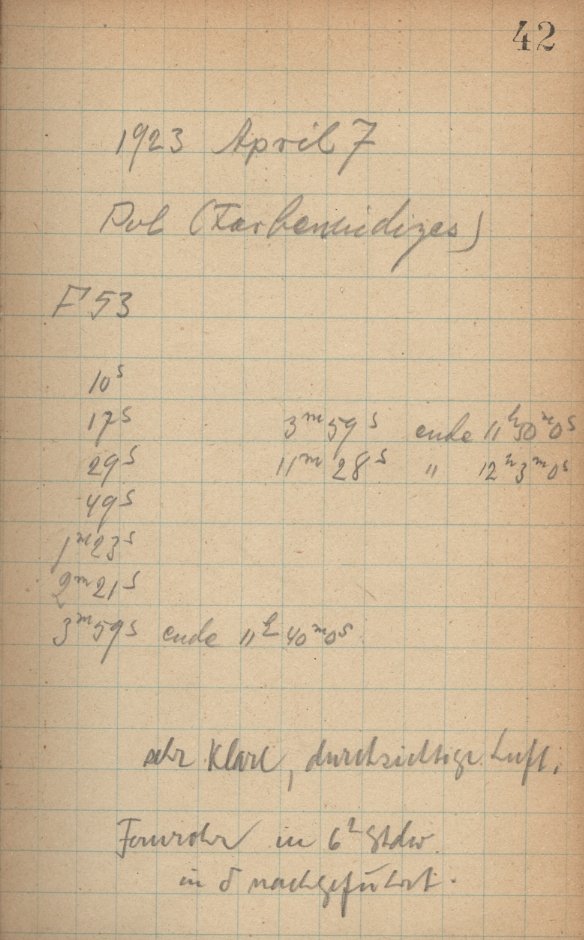 42
1923 April 7
Pol (Farbenindizes)
F 53
10s
17s 3m 59s ende 11h 50m 0s
29s 11m 28s " 12h 3m 0s
49s
1m 23s
2m 21s
3m 59s ende 11h 40m 0s
sehr klare, durchsichtige Luft.
Fernrohr in 6h Stdw.
in δ nachgeführt.